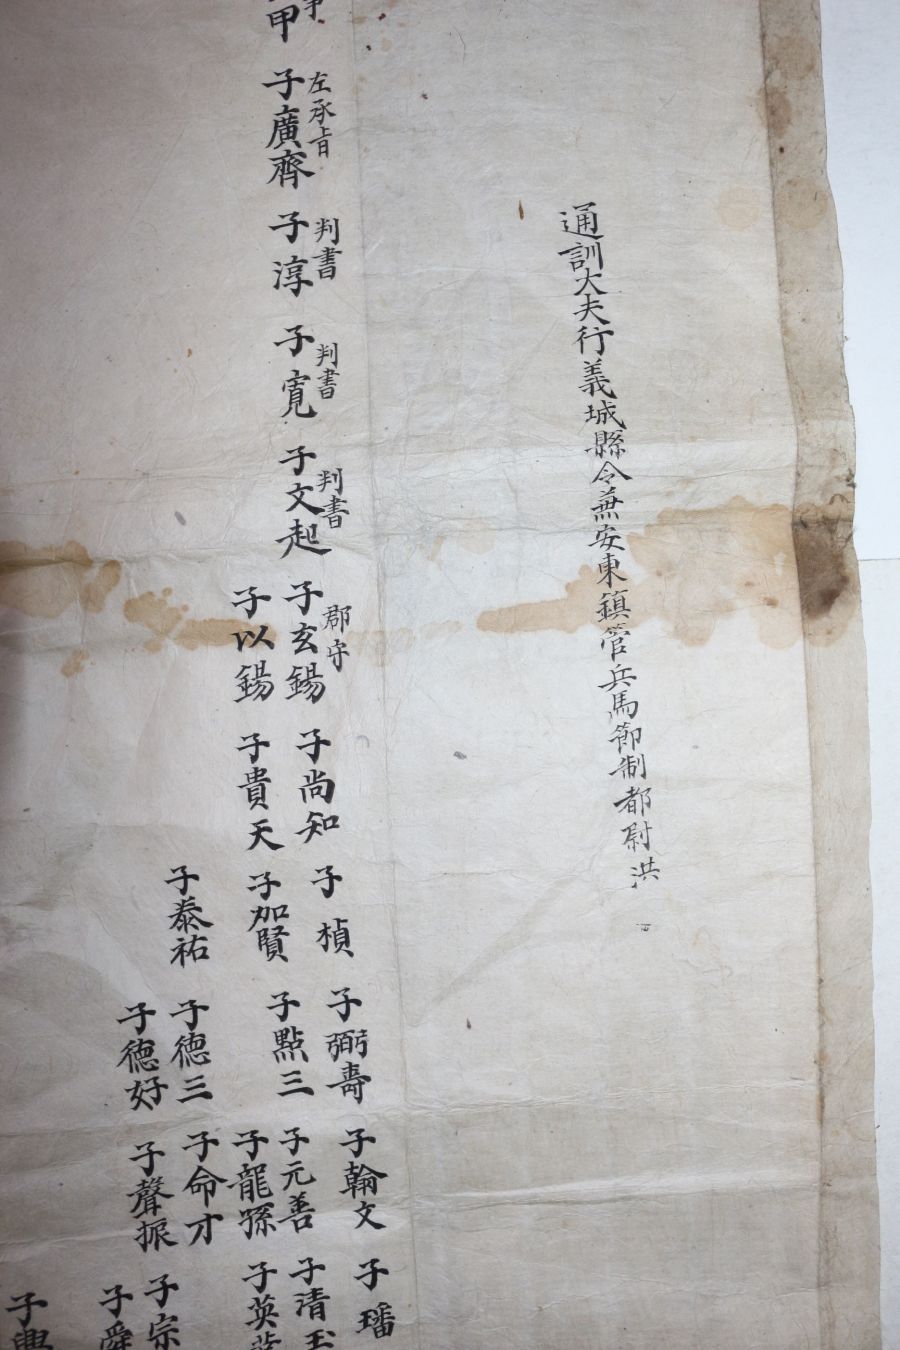 通訓大夫行義城縣令兼安東鎮管兵馬節制都尉洪
甲
左承旨
子廣齊
判書
子淳
判書
子寬
判書
子文起
郡守
子玄錫
子以錫
子尚知
子貴天
子楨
子加賢
子泰祐
子弼壽
子點三
子德三
子德好
子翰文
子元善
子龍孫
子命才
子聲振
子璠
子清玉
子英
子宗
子舜
子興